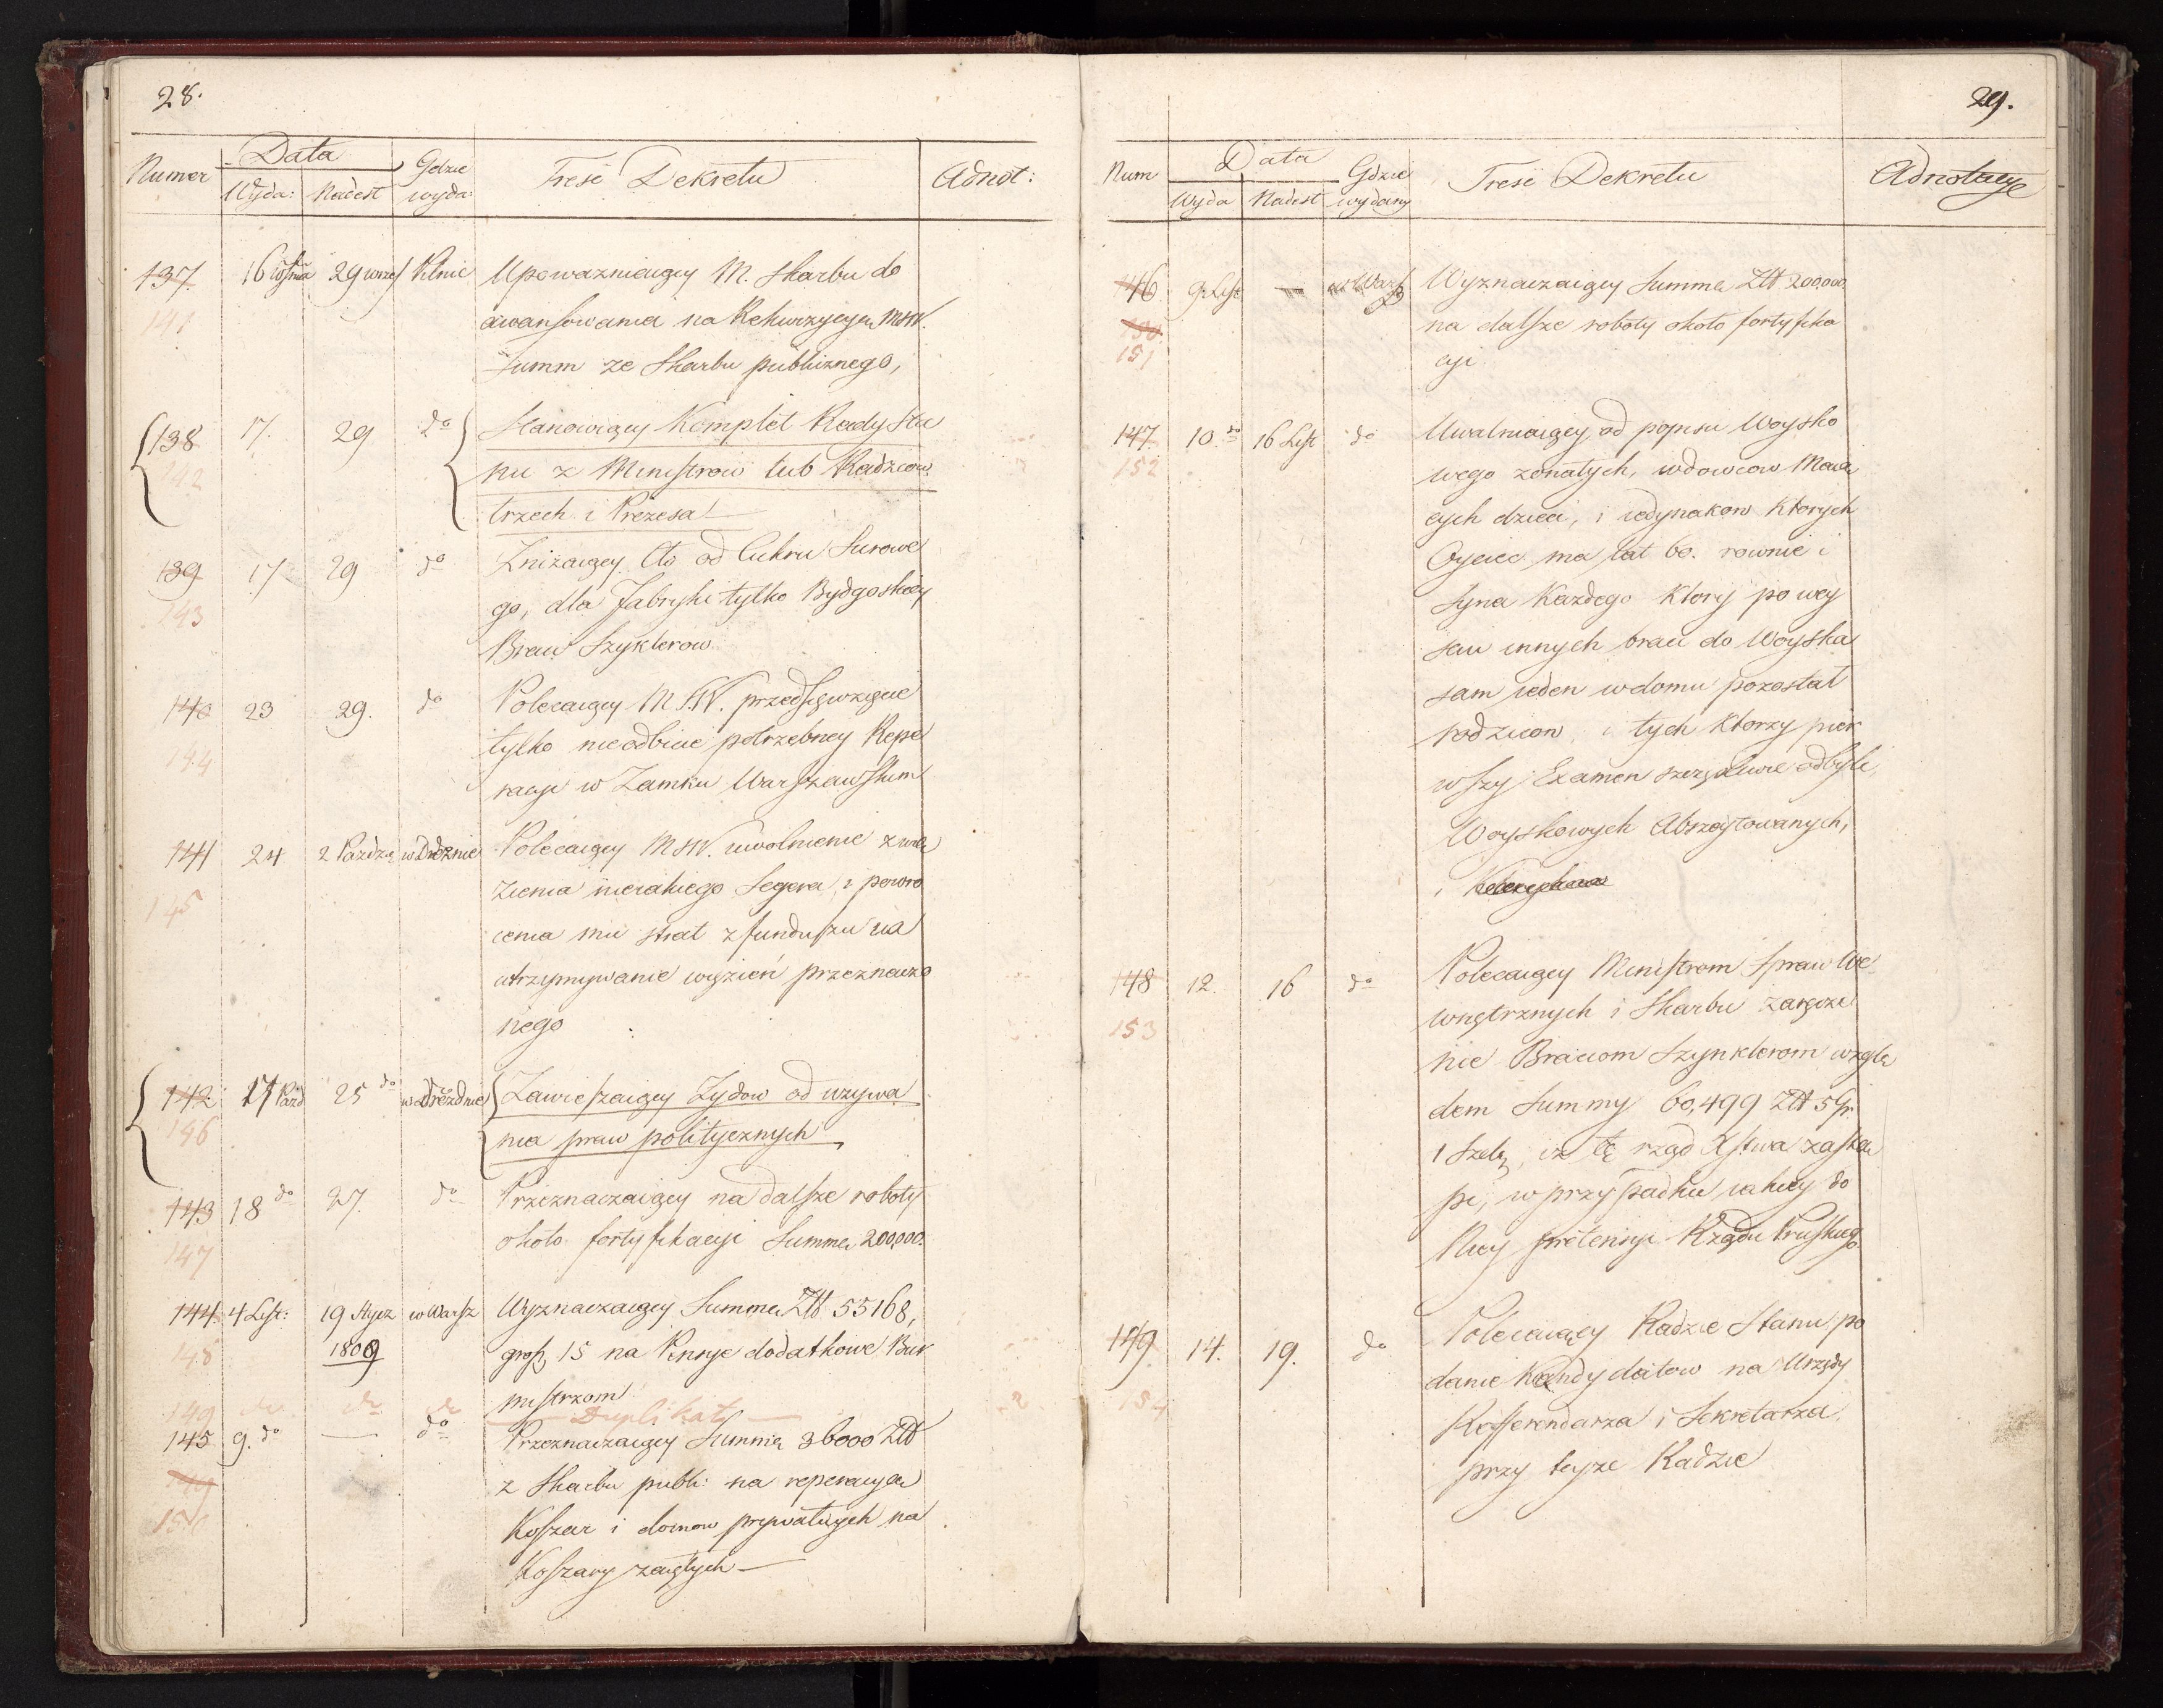 28.
Numer Data Gdzie wyda: Treść Dekretu Adnot:
Wyda: Nadest
137. 16 29 wrześ Pilnic Upoważniaiący M. Skarbu do
141 awansowania na Rekwizycyą MSW.
Summ ze Skarbu publicznego,
138 17. 29 do Stanowiący Komplet Rady Sta
142 nu z Ministrow lub Radzcow
trzech i Prezesa
139 17 29 do Zniżaiący Cło od Cukru Surowe
143 go, dla Fabryki tylko Bydgoskiey
Braci Szyklerow
140 23 29. do Polecaiący M.S.W. przedsięwzięcie
144 tylko nieodbicie potrzebney Repe
racyi w Zamku Warszawskim
141 24 2 Paźdz w Dreznie Polecaiący MSW. uwolnienie z wię
145 zienia nieiakiego Segera, i powro
cenia mu strat z funduszu na
utrzymywanie więzień przeznaczo
nego
142 17 Paźd 25 do w Dreźdnie Zawieszaiący Zydow od uzywa
146 nia praw politycznych
143 18 do 27. do Przeznaczaiący na dalsze roboty
147 około fortyfikacyi Summę 200,000.
144 4 List: 19 Stycz w Warsz Wyznaczaiący Summę Złt 55168,
148 1809 grosz 15 na Pensye dodatkowe Bur
mistrzom
149 do do do — Duplikat —
145 9. do — do Przeznaczaiący Summę 36000 Złt
149 z Skarbu publi: na reperacyą
150 Koszar i domow prywatnych na
Koszary zaiętych —
29.
Num Data Gdzie wydany Treść Dekretu Adnotacye
Wyda Nadest
146 9 List — w Warsz Wyznaczaiący Summę Złt 200,000.
150 na dalsze roboty około fortyfika
151 cyi
147 10 do 16 List do Uwalniaiący od popisu Woysko
152 wego zonatych, wdowcow Maią
cych dzieci, i iedynakow Ktorych
Oyciec ma lat 60. rownie i
Syna Kazdego Ktory po wey
ściu innych braci do Woyska
sam ieden w domu pozostał
rodzicow, i tych Ktorzy pier
wszy Examen szczęśliwie odbyli,
Woyskowych Abszeytowanych,
i
148 12. 16 do Polecaiący Ministrom Spraw We
153 wnętrznych i Skarbu zaręcze
nie Braciom Szynklerom wzglę
dem Summy 60,499 Złt 5 gr.
1 Szeląg, iż tę rząd Xstwa zastą
pi, w przypadku iakiey do
Niey pretensyi Rządu Pruskiego.
149 14. 19. do Polecaiący Radzie Stanu po
154 danie Kandydatow na Urzędy
Refferendarza i Sekretarza,
przy teyze Radzie